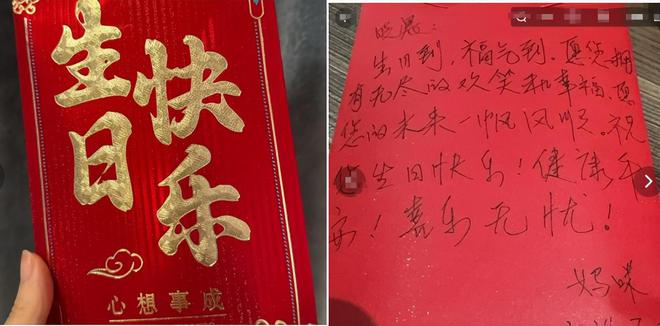 生日
快乐
心想事成
生日到,福气到.愿您拥
有无尽的欢笑和幸福.愿
您的未来一帆风顺。祝
生日快乐!健康平
安!喜乐无忧!
妈咪